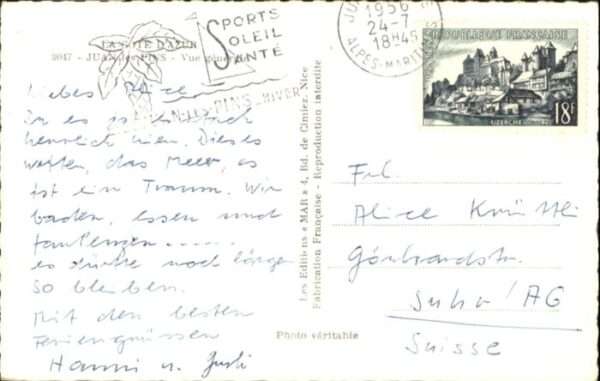 LA COTE D'AZUR
2047 - JUAN-les-PINS - Vue générale
SPORTS
SOLEIL
SANTÉ
PINS HIVER
1956
24-7
18H45
ALPES-MARITIMES
RÉPUBLIQUE FRANÇAISE
UZERCHE
18F
Liebes
Oh es ist
herrlich hier. Dieses
Wetter, das Meer, es
ist ein Traum. Wir
baden, essen und
faulenzen......
es dürfte noch lange
so bleiben.
Mit den besten
Feriengrüssen
Hanni u.
Les Editions « MAR » 4, Bd. de Cimiez, Nice
Fabrication Française - Reproduction interdite
Photo véritable
Frl.
Alice
Suhr / AG
Suisse